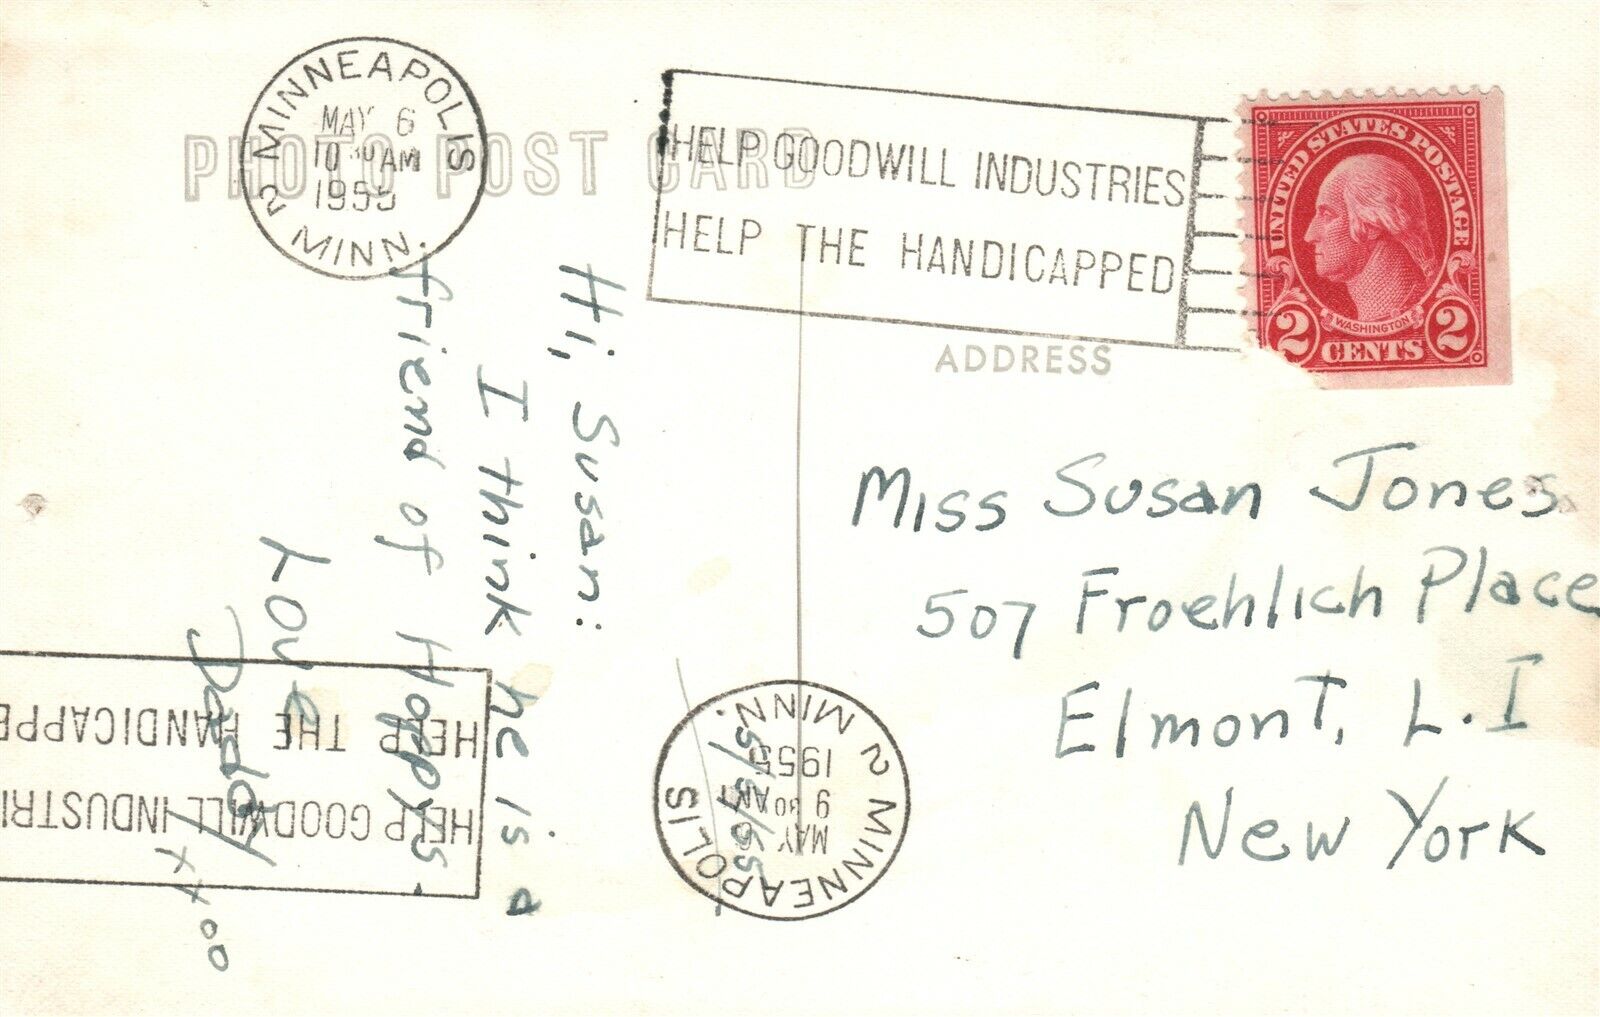 PHOTO POST CARD
MINNEAPOLIS
2
MINN.
MAY 6
10 30 AM
1955
HELP GOODWILL INDUSTRIES
HELP THE HANDICAPPED
UNITED STATES POSTAGE
WASHINGTON
2 CENTS 2
ADDRESS
Miss Susan Jones
507 Froehlich Place
Elmont, L.I
New York
5/5/55
Hi, Susan:
I think he is a
friend of Hoppy's.
Love
Daddy
xxoo
MINNEAPOLIS
2
MINN.
MAY
9 30 AM
1955
HELP GOODWILL INDUSTRI
HELP THE HANDICAPPE